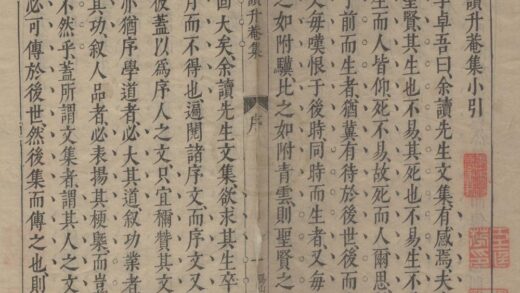 讀升菴集小引
李卓吾曰余讀先生文集有感焉夫
聖賢其生也不易其死也不易生不
生而人皆仰死不易故死而人爾思
于前而生者猶冀有待於後世後而
又每嘆恨于後時同時而生者又每
之如附驥比之如附青雲則聖賢之
讀升菴集
序
一
固大矣余讀先生文集欲求其生卒
月而不得也遍閱諸序文而序文又
彼蓋以為序人之文只宜稱贊其文
亦猶序學道者必大其道叙功業者
其功叙人品者必表揚其梗槩而豈
不然乎蓋所謂文集者謂其人之文
必可傳於後世然後集而傳之也則